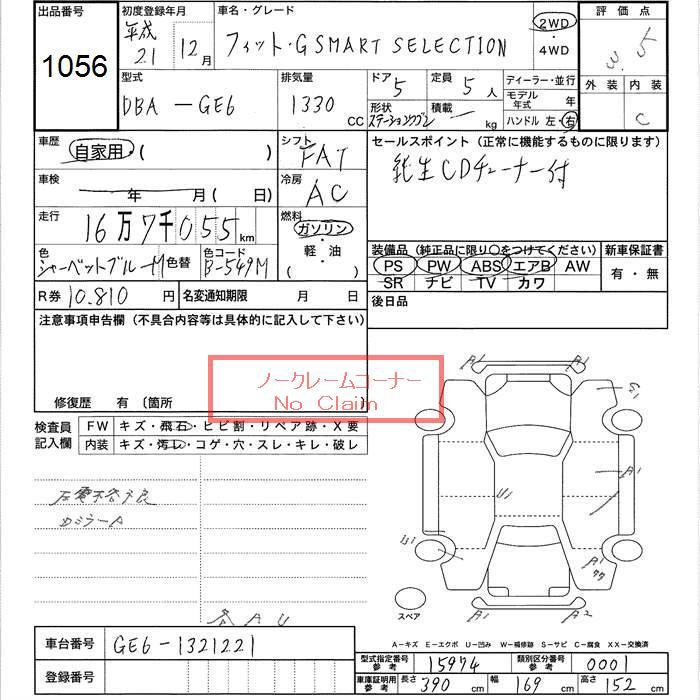 出品番号 初度登録年月 車名・グレード 評価点
1056 平成21 12月 フィット・G SMART SELECTION 2WD ・ 4WD 3.5
外装 内装
C
型式 排気量 ドア 定員 ディーラー・並行
DBA - GE6 1330 CC 5 5人 モデル年式 年
形状 積載 ハンドル 左・右
ステーションワゴン kg
車歴 自家用・( ) シフト FAT セールスポイント（正常に機能するものに限ります）
純生CDチューナー付
車検 年 月(日) 冷房 AC
走行 16万7千055km 燃料 ガソリン・軽・油( )
色 シャーベットブルーM 色替 色コード B-549M
装備品（純正品に限り○をつけてください） 新車保証書
PS PW ABS エアB AW 有・無
SR ナビ TV カワ
R券 10,810円 名変通知期限 月 日 後日品
注意事項申告欄（不具合内容等は具体的に記入して下さい）
ノークレームコーナー
No Claim
修復歴 有〔箇所
検査員記入欄 FW キズ・飛石・ヒビ割・リペア跡・X要
内装 キズ・汚レ・コゲ・穴・スレ・キレ・破レ
A1 A1
S1
A1
U1
A1
スペア A1 A2
車台番号 GE6-1321221
登録番号
A－キズ E－エクボ U－凹み W－補修跡 S－サビ C－腐食 XX－交換済
型式指定番号 参考 15974 類別区分番号 参考 0001
車庫証明用 参考 長さ 390cm 幅 169cm 高さ 152cm